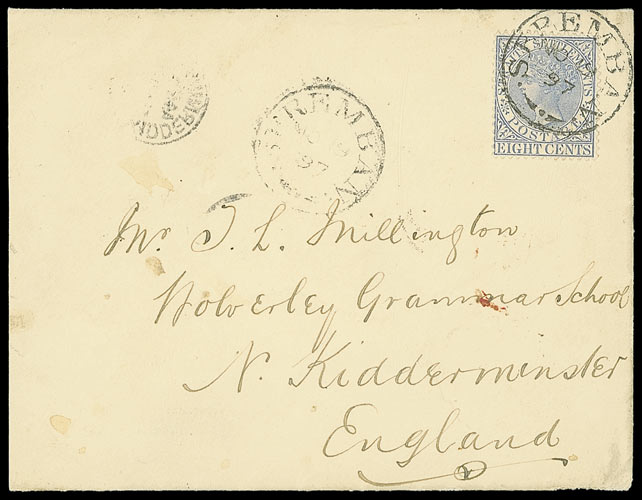 STRAITS SETTLEMENTS
POSTAGE
EIGHT CENTS
SEREMBAN
97
SEREMBAN
97
Mr J. L. Millington
Wolverley Grammar School
N. Kidderminster
England